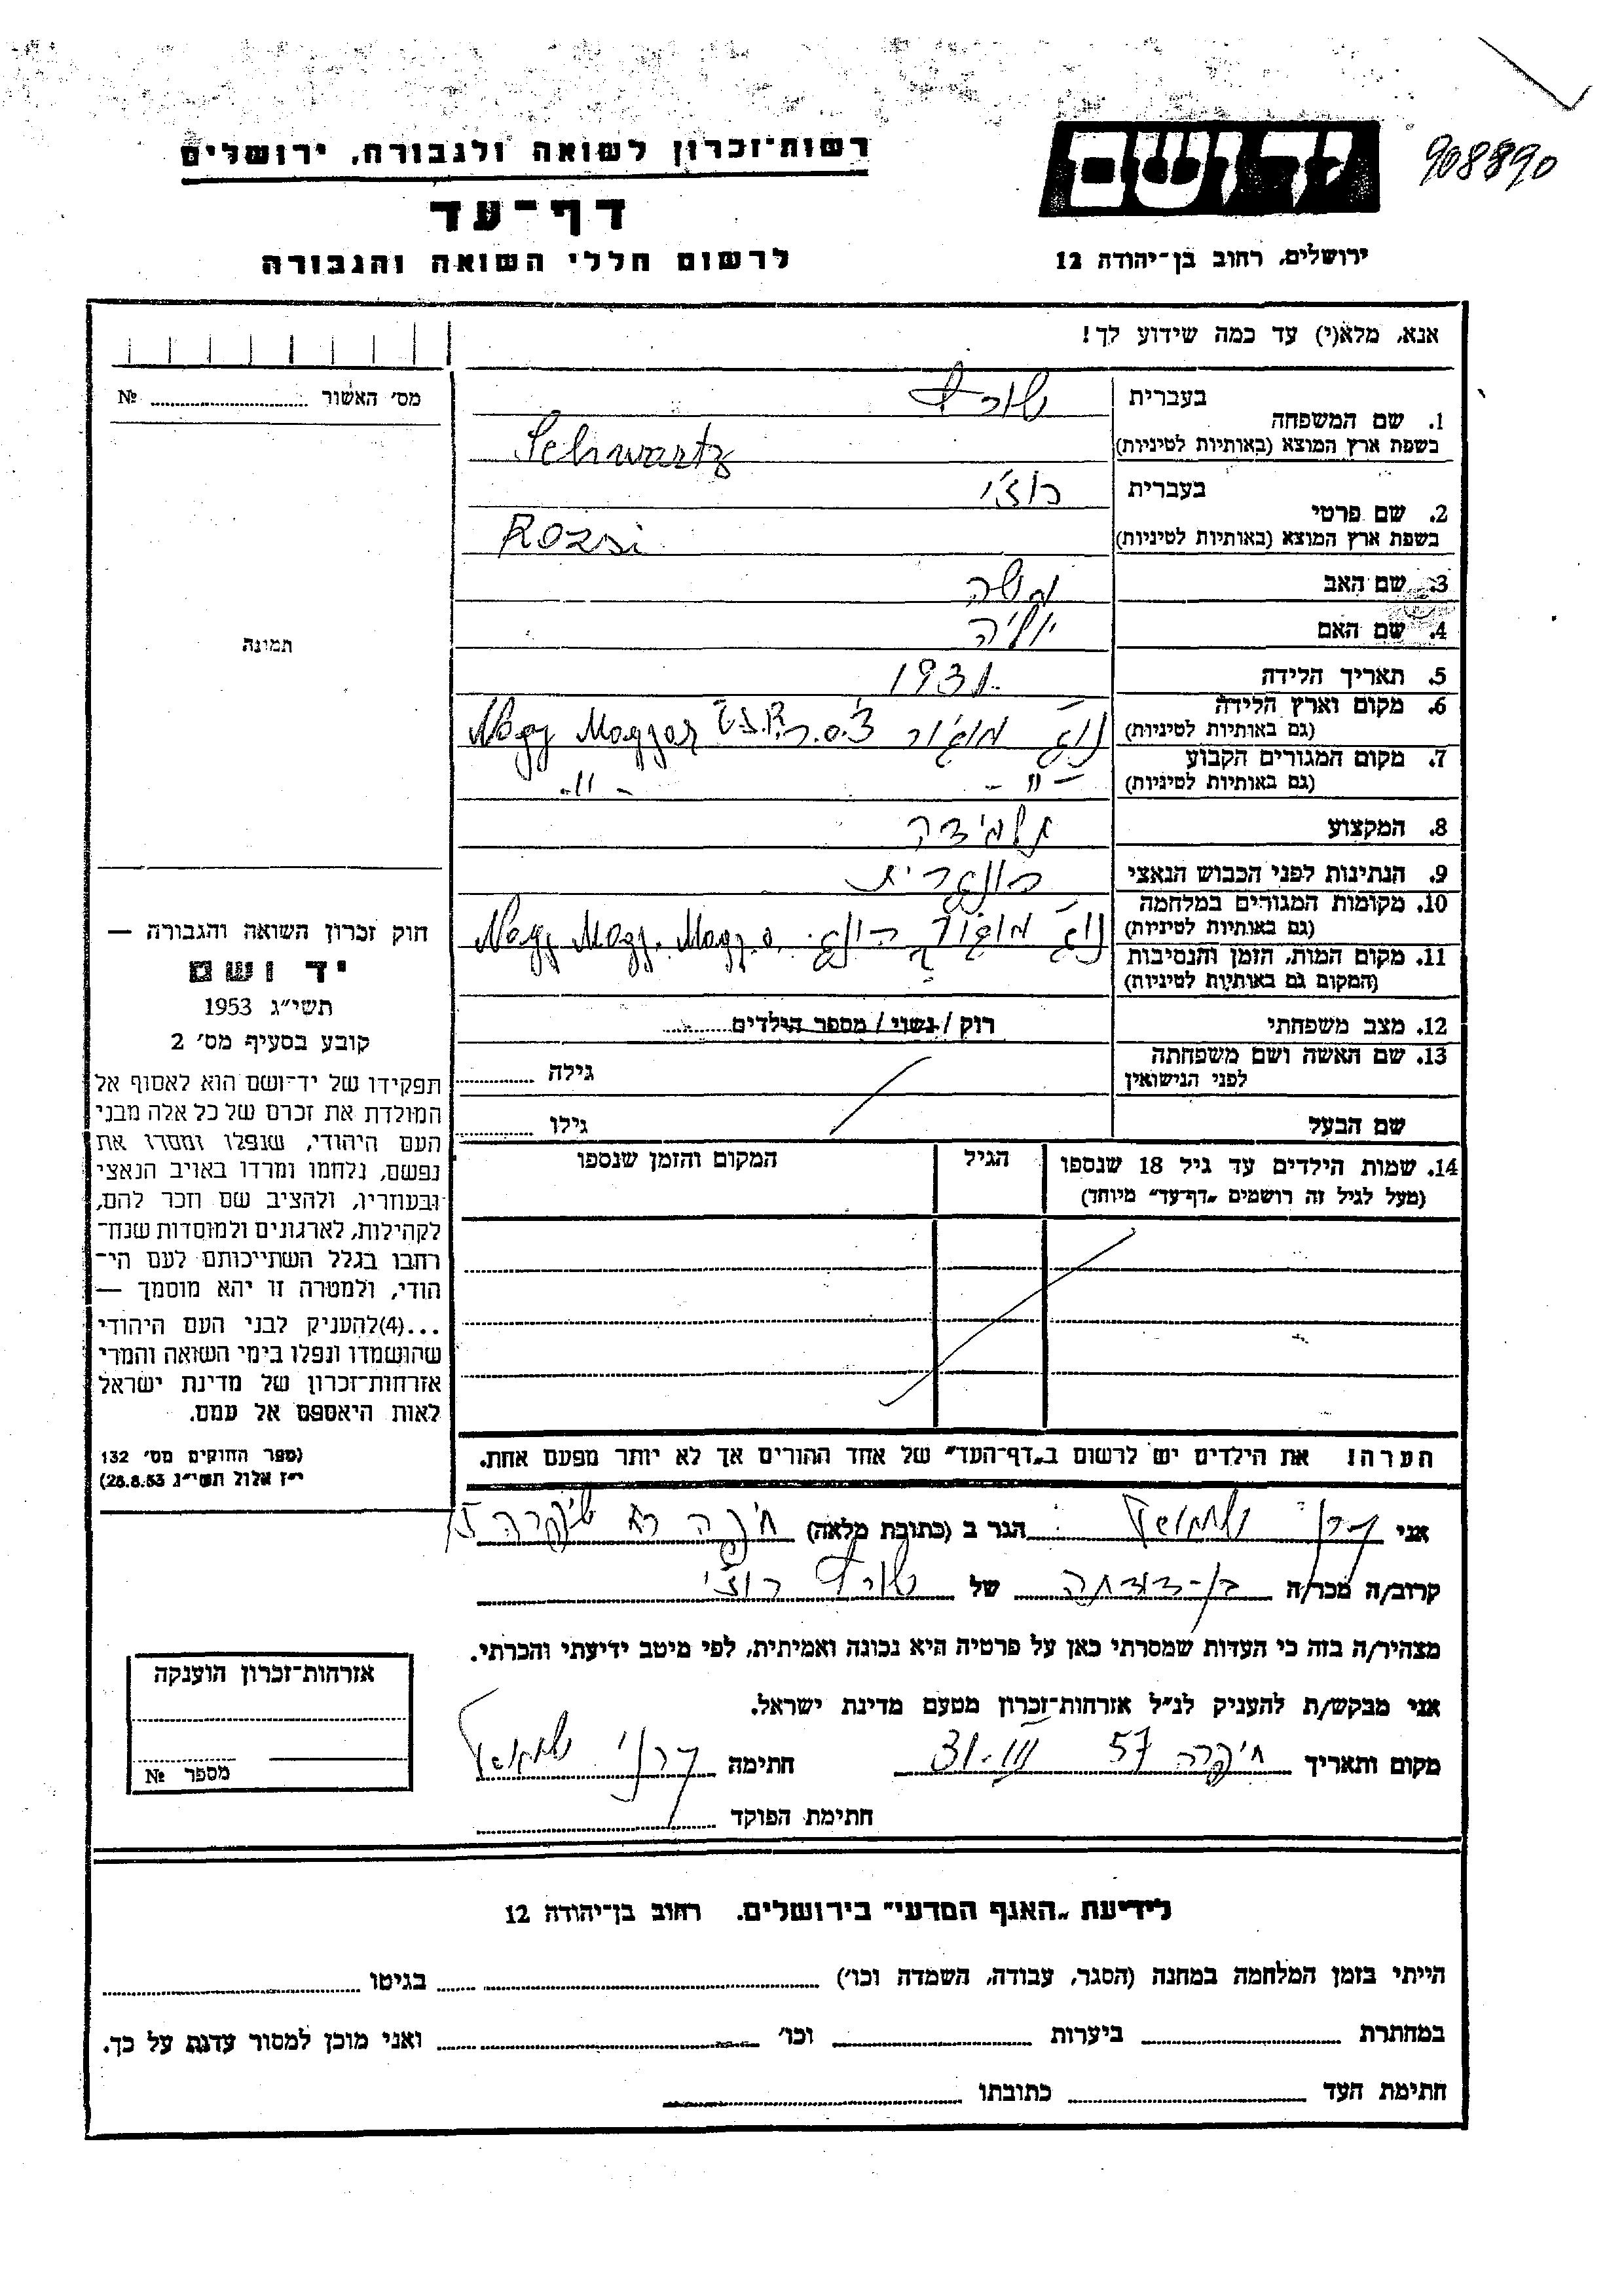 908890
יד ושם
רשות־זכרון לשואה ולגבורה, ירושלים
דף־עד
לרשום חללי השואה והגבורה
ירושלים, רחוב בן־יהודה 12
אנא, מלא(י) עד כמה שידוע לך!
מס' האשור № 
1. שם המשפחה
בעברית שורץ
בשפת ארץ המוצא (באותיות לטיניות) Schwartz
2. שם פרטי
בעברית רוז'י
בשפת ארץ המוצא (באותיות לטיניות) Rozsi
3. שם האב משה
4. שם האם יוליה
5. תאריך הלידה 1931
6. מקום וארץ הלידה
(גם באותיות לטיניות) צ'.ס.ר. Č.S.R. Nagy Magyar
7. מקום המגורים הקבוע
(גם באותיות לטיניות) -"- -"-
8. המקצוע תלמידה
9. הנתינות לפני הכבוש הנאצי הונגרית
10. מקומות המגורים במלחמה
(גם באותיות לטיניות) Nagy Magy. Magy.o.
11. מקום המות, הזמן והנסיבות
(המקום גם באותיות לטיניות)
12. מצב משפחתי רוק / נשוי / מספר הילדים
13. שם האשה ושם משפחתה
לפני הנישואין
גילה
שם הבעל
גילו
14. שמות הילדים עד גיל 18 שנספו
(מעל לגיל זה רושמים „דף־עד” מיוחד)
הגיל
המקום והזמן שנספו
הערה! את הילדים יש לרשום ב„דף־העד” של אחד ההורים אך לא יותר מפעם אחת.
תמונה
חוק זכרון השואה והגבורה —
יד ושם
תשי"ג 1953
קובע בסעיף מס' 2
תפקידו של יד־ושם הוא לאסוף אל
המולדת את זכרם של כל אלה מבני
העם היהודי, שנפלו ומסרו את
נפשם, נלחמו ומרדו באויב הנאצי
ובעוזריו, ולהציב שם וזכר להם,
לקהילות, לארגונים ולמוסדות שנח־
רבו בגלל השתייכותם לעם הי־
הודי, ולמטרה זו יהא מוסמך —
...(4)להעניק לבני העם היהודי
שהושמדו ונפלו בימי השואה והמרי
אזרחות־זכרון של מדינת ישראל
לאות היאספם אל עמם.
(ספר החוקים מס' 132
י"ז אלול תשי"ג 28.8.53)
אני שמואל הגר ב (כתובת מלאה) חיפה
קרוב/ה מכר/ה בן-דודתה של שורץ רוז'י
מצהיר/ה בזה כי העדות שמסרתי כאן על פרטיה היא נכונה ואמיתית, לפי מיטב ידיעתי והכרתי.
אני מבקש/ת להעניק לנ"ל אזרחות־זכרון מטעם מדינת ישראל.
מקום ותאריך חיפה 31.III 57 חתימה שמואל
חתימת הפוקד
אזרחות־זכרון הוענקה
מספר №
לידיעת „האגף המדעי” בירושלים. רחוב בן־יהודה 12
הייתי בזמן המלחמה במחנה (הסגר, עבודה, השמדה וכו') בגיטו
במחתרת ביערות וכו' ואני מוכן למסור עדות על כך.
חתימת העד כתובתו